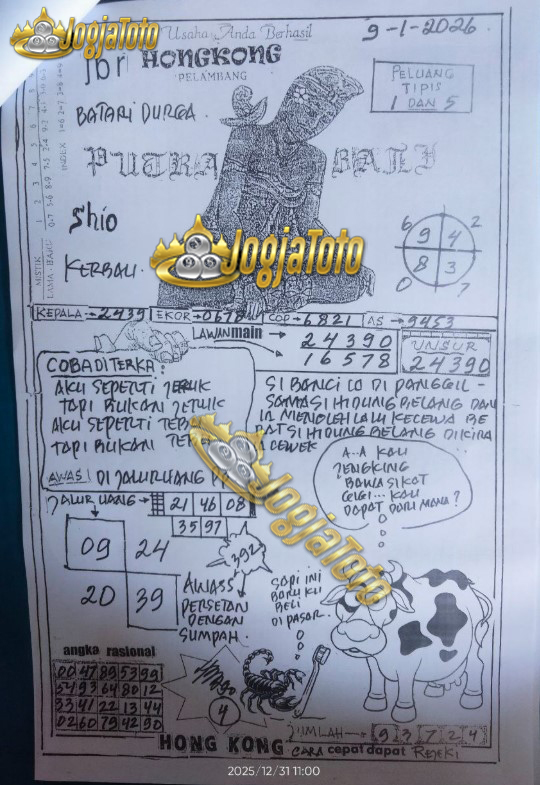 JogjaToto
Usaha Anda Berhasil
9-1-2026
HONGKONG
PELAMBANG
PELUANG
TIPIS
1 DAN 5
BATARI DURGA
PUTRA BALI
Shio
KERBAU.
JogjaToto
6 2
9 4
8 3
0 7
MISTIK
LAMA - BARU
INDEX
KEPALA → 2439 EKOR → 0678 COP → 6821 AS → 9453
LAWAN main →
24390
16578
UNSUR
24390
COBA DITERKA:
AKU SEPERTI JERUK
TAPI BUKAN JERUK
AKU SEPERTI
TAPI BUKAN
SI BANCI LG DI PANGGIL -
SAMA SI HIDUNG BELANG DAN
IA MENOLEH LALU KECEWA BE
RAT SI HIDUNG BELANG DIKIRA
CEWEK
AWAS! DI JALUR UANG
JALUR UANG → 21 46 08
35 97
392
09 24
20 39
AWASS
PERSETAN
DENGAN
SUMPAH.
JogjaToto
A..A KAU
JENGKING
BAWA SIKAT
GIGI... KAU
DAPAT DARI MANA?
SAPI INI
BARU KU
BELI
DI PASAR.
angka rasional
00 47 89 53 99
54 93 64 80 12
33 41 22 13 44
02 60 79 42 90
4
JUMLAH → 9 3 7 2 4
HONG KONG
CARA cepat dapat REJEKI
2025/12/31 11:00